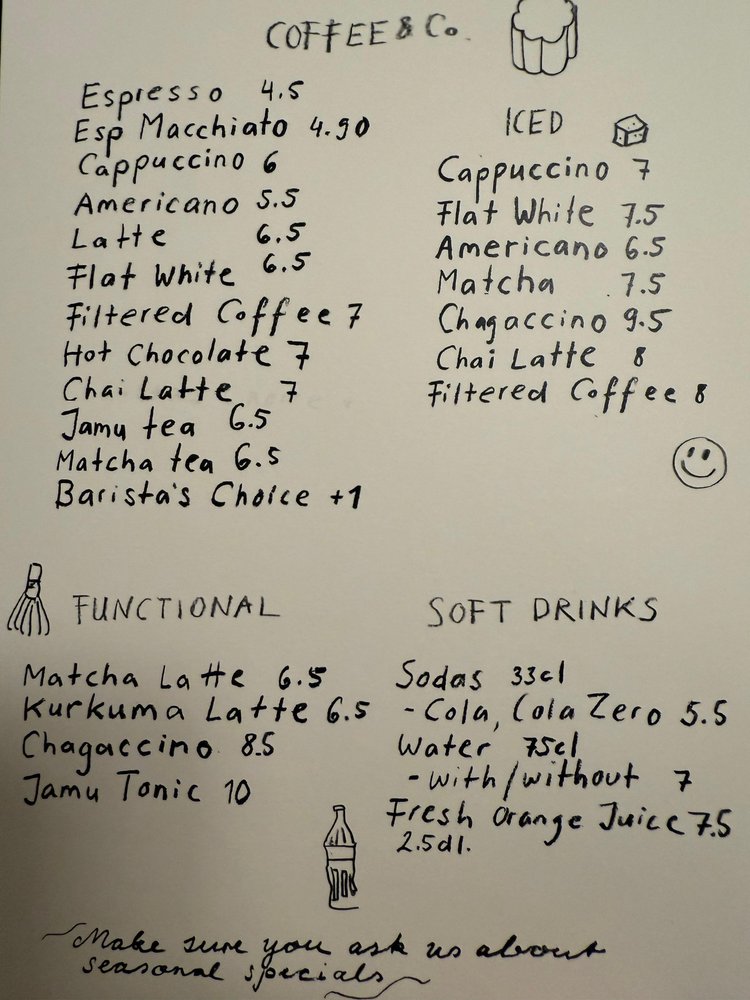 COFFEE & Co.
Espresso 4.5
Esp Macchiato 4.90
Cappuccino 6
Americano 5.5
Latte 6.5
Flat White 6.5
Filtered Coffee 7
Hot Chocolate 7
Chai Latte 7
Jamu tea 6.5
Matcha tea 6.5
Barista's Choice +1
ICED
Cappuccino 7
Flat White 7.5
Americano 6.5
Matcha 7.5
Chagaccino 9.5
Chai Latte 8
Filtered Coffee 8
FUNCTIONAL
Matcha Latte 6.5
Kurkuma Latte 6.5
Chagaccino 8.5
Jamu Tonic 10
SOFT DRINKS
Sodas 33cl
- Cola, Cola Zero 5.5
Water 75cl
- with/without 7
Fresh Orange Juice 7.5
2.5dl.
~Make sure you ask us about
seasonal specials~